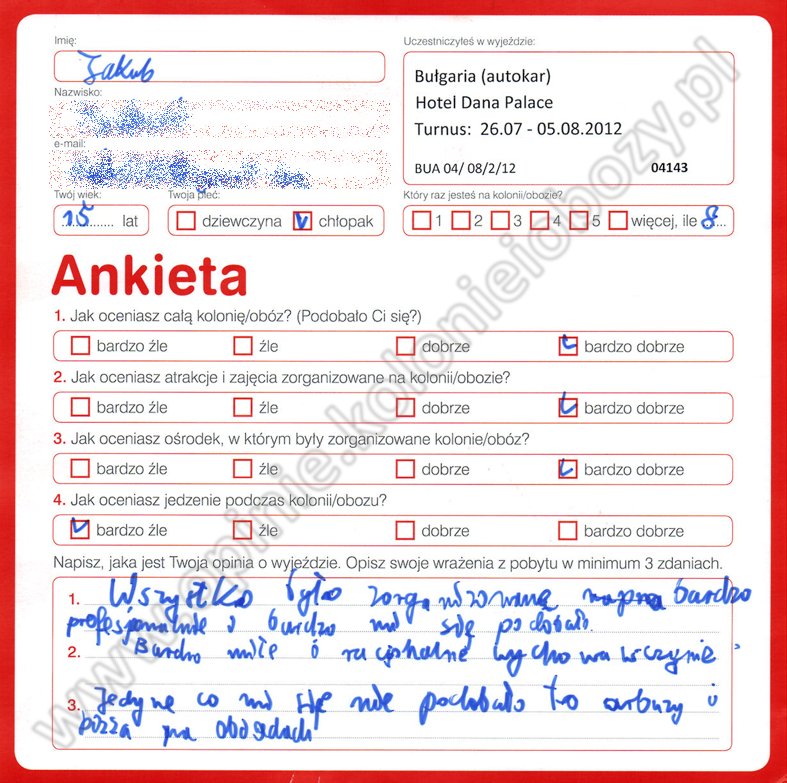 Imię:
Jakub
Uczestniczyłeś w wyjeździe:
Bułgaria (autokar)
Hotel Dana Palace
Turnus: 26.07 - 05.08.2012
BUA 04/ 08/2/12 04143
Nazwisko:
e-mail:
Twój wiek:
15 lat
Twoja płeć:
dziewczyna chłopak
Który raz jesteś na kolonii/obozie?
1 2 3 4 5 więcej, ile 8
Ankieta
1. Jak oceniasz całą kolonię/obóz? (Podobało Ci się?)
bardzo źle źle dobrze bardzo dobrze
2. Jak oceniasz atrakcje i zajęcia zorganizowane na kolonii/obozie?
bardzo źle źle dobrze bardzo dobrze
3. Jak oceniasz ośrodek, w którym były zorganizowane kolonie/obóz?
bardzo źle źle dobrze bardzo dobrze
4. Jak oceniasz jedzenie podczas kolonii/obozu?
bardzo źle źle dobrze bardzo dobrze
Napisz, jaka jest Twoja opinia o wyjeździe. Opisz swoje wrażenia z pobytu w minimum 3 zdaniach.
1. Wszystko było zorganizowane bardzo
profesjonalnie i bardzo mi się podobało.
2. Bardzo miłe i racjonalne wychowawczynie
3. Jedyne co mi się nie podobało to arbuzy i
pizza na obiadach
www.opinie.kolonieiobozy.pl